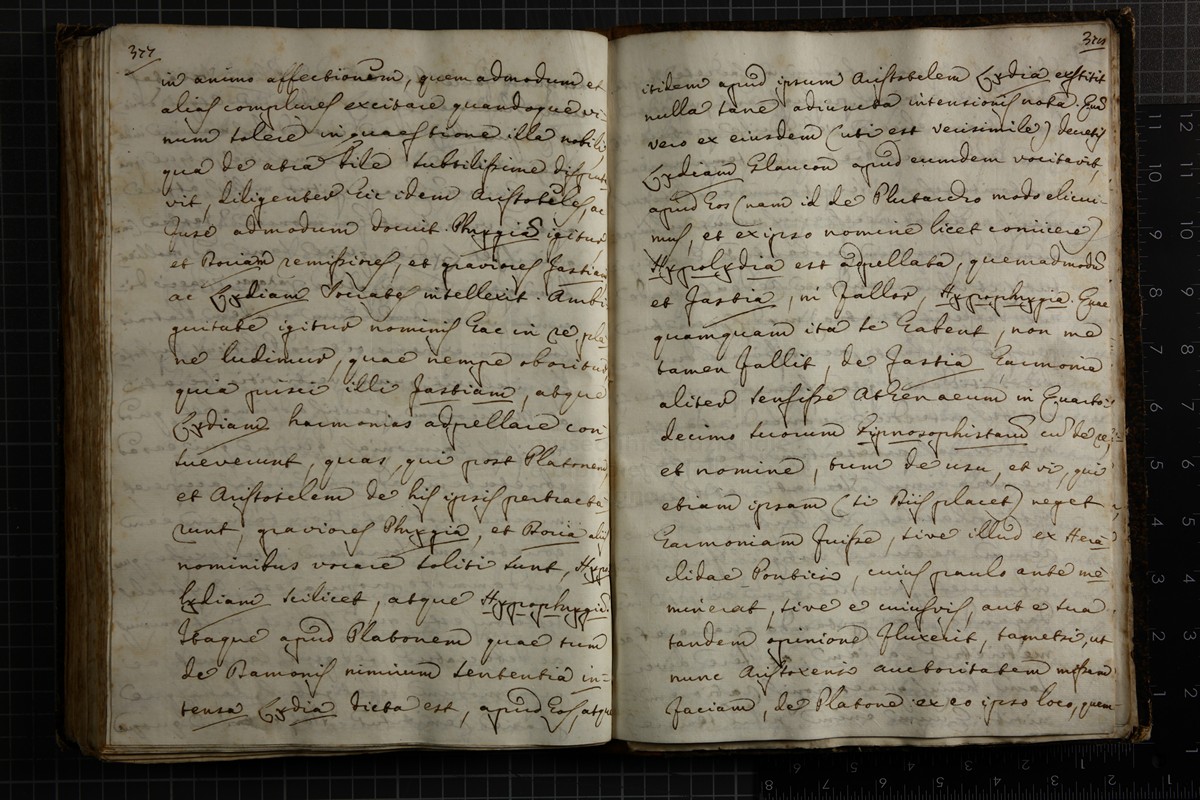 377
in animo affectionem, quemadmodum et
alias complures excitare quandoque vi-
num solere in quaestione illa nobili
qua de atra bile subtilissime disputa-
vit, diligenter hic idem Aristoteles, ac
fuse admodum docuit. Phrygiā igitur
et Doriam remissiores, et graviores Jastiam
ac Lydiam Socrates intellexit. Ambi
guitate igitur nominis hac in re pla
ne ludimur, quae nempe oboritur
quia prisci illi Jastiam, atque
Lydiam harmonias adpellare con-
sueverunt, quas, qui post Platonem
et Aristotelem de his ipsis pertracta
runt, graviores Phrygia, et Doria aliis
nominibus vocare soliti sunt, Hypo
lydiam scilicet, atque Hypophrygiā.
Itaque apud Platonem quae tum
de Damonis nimirum sententia in-
tensa Lydia dicta est, apud hos atque
itidem apud ipsum Aristotelem Lydia exstitit
nulla sane adiuncta intensionis nota. Quā
vero ex eiusdem (uti est verisimile) decretis
Lydiam Glaucon apud eumdem vocitavit,
apud hos (nam id de Plutarcho modo elicui-
mus, et ex ipso nomine licet coniicere)
Hypolydia est adpellata, quemadmodū
et Jastia, ni fallor, Hypophrygia. Quae
quamquam ita se habent, non me
tamen fallit, de Jastia harmonia
aliter sensisse Athenaeum in Quarto
decimo suorum Dipnosophistarū cū de re,
et nomine, tum de usu, et vi, qui
etiam ipsam (si Diis placet) neget
harmoniam fuisse, sive illud ex Hera
clidae Pontico, cuius paulo ante me
minerat, sive e cuiusvis, aut e sua
tandem opinione fluxerit, tametsi, ut
nunc Aristoxeni auctoritatem missam
faciam, de Platone ex eo ipso loco, quem